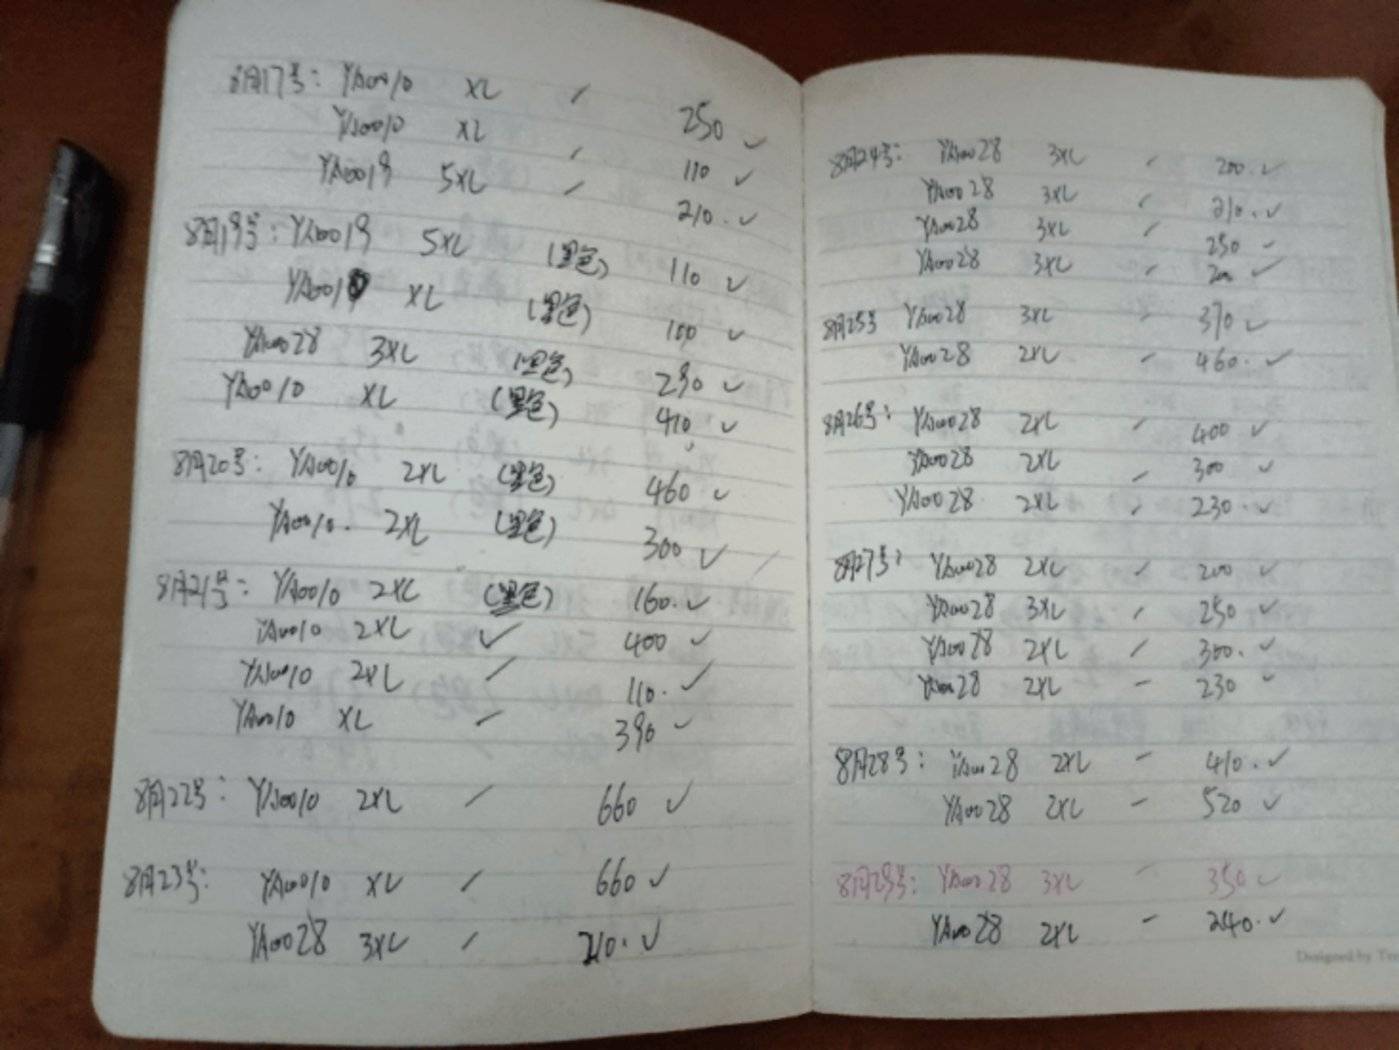 8月17号: YA0010 XL / 250 ✓
YA0010 XL / 110 ✓
YA0019 5XL / 210. ✓
8月19号: YA0019 5XL (黑色) 110 ✓
YA001 XL (黑色) 100 ✓
YA0028 3XL (黑色) 290 ✓
YA0010 XL (黑色) 410 ✓
8月20号: YA0010 2XL (黑色) 460 ✓
YA0010. 2XL (黑色) 300 ✓
8月21号: YA0010 2XL (黑色) 160. ✓
YA0010 2XL ✓ 400 ✓
YA0010 2XL / 110. ✓
YA0010 XL / 390 ✓
8月22号: YA0010 2XL / 660 ✓
8月23号: YA0010 XL / 660 ✓
YA0028 3XL / 210. ✓
8月24号: YA0028 3XL / 200. ✓
YA0028 3XL / 210. ✓
YA0028 3XL / 250 ✓
YA0028 3XL / 200 ✓
8月25号 YA0028 3XL - 370 ✓
YA0028 2XL - 460. ✓
8月26号: YA0028 2XL / 400 ✓
YA0028 2XL / 300 ✓
YA0028 2XL / 230. ✓
8月27号: YA0028 2XL / 200 ✓
YA0028 3XL / 250 ✓
YA0028 2XL / 300. ✓
YA0028 2XL - 230 ✓
8月28号: YA0028 2XL - 410. ✓
YA0028 2XL - 520 ✓
8月29号: YA0028 3XL - 350 ✓
YA0028 2XL - 240. ✓
Designed by